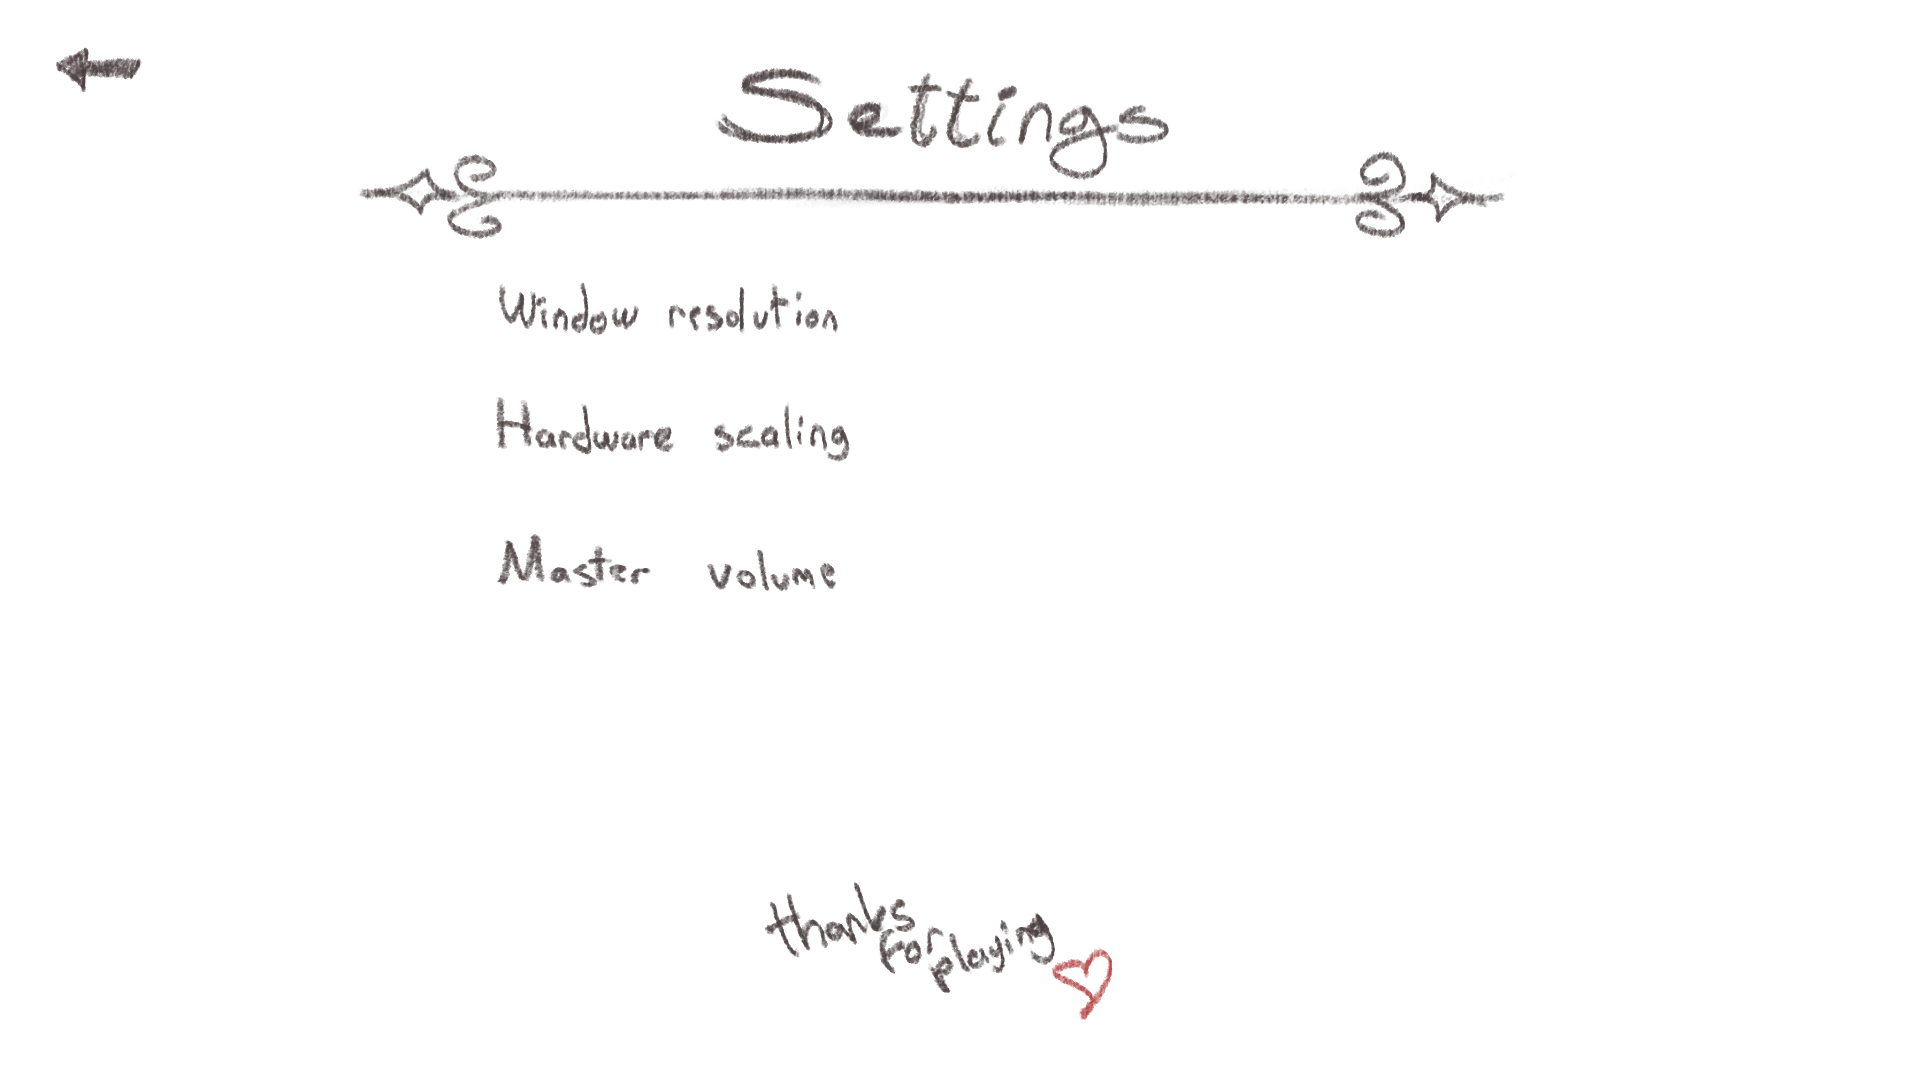 Settings
Window resolution
Hardware scaling
Master volume
thanks
for
playing